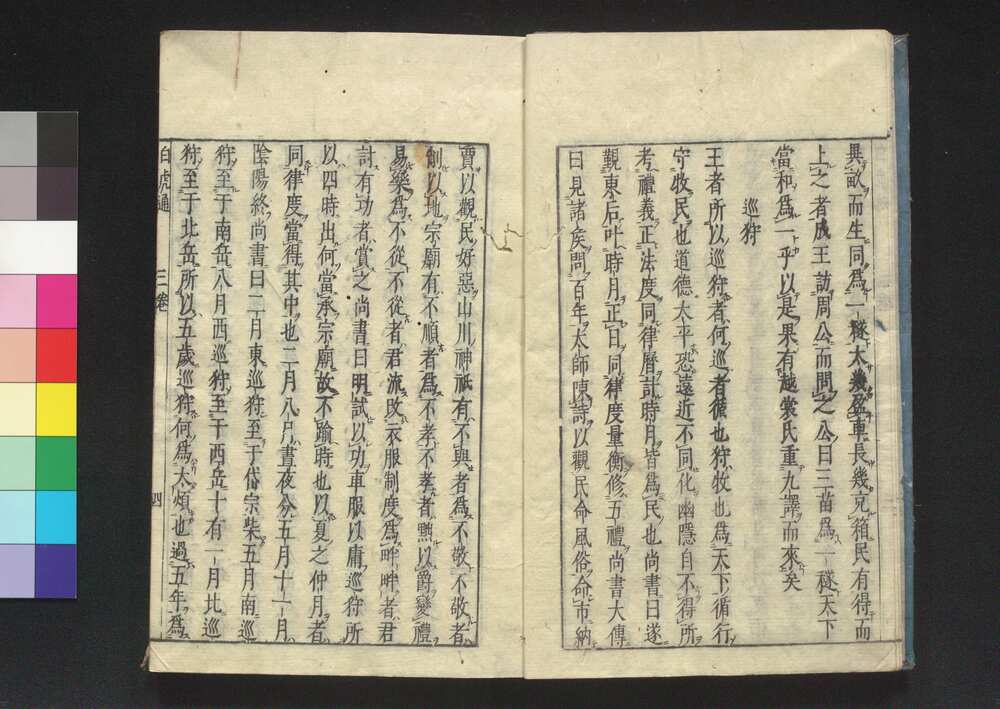 異畝而生同爲一穟大幾盈車長幾充箱民有得而
上之者成王訪周公而問之公曰三苗爲一穟天下
當和爲一乎以是果有越裳氏重九譯而來矣
巡狩
王者所以巡狩者何巡者循也狩牧也爲天下循行
守牧民也道德太平恐遠近不同化幽隱自不得所
考禮義正法度同律曆計時月皆爲民也尚書曰遂
覲東后叶時月正日同律度量衡修五禮尚書大傳
曰見諸侯問百年太師陳詩以觀民命風俗命市納
賈以觀民好惡山川神祇有不舉者爲不敬不敬者
削以地宗廟有不順者爲不孝不孝者黜以爵變禮
易樂爲不從不從者君流改衣服制度爲畔畔者君
討有功者賞之尚書曰明試以功車服以庸巡狩所
以四時出何當承宗廟故不踰時也以夏之仲月者
同律度當得其中也二月八月晝夜分五月十一月
陰陽終尚書曰二月東巡狩至于岱宗柴五月南巡
狩至于南岳八月西巡狩至于西岳十有一月北巡
狩至于北岳所以五歲巡狩何爲大煩也過五年爲
白虎通 三卷 四